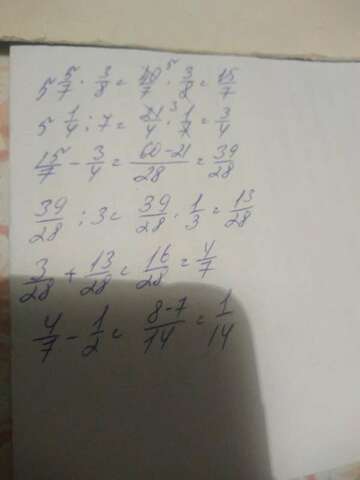 5 5/7 · 3/8 = 40/7 5 · 3/8 = 15/7
5 1/4 : 7 = 21/4 3 · 1/7 = 3/4
15/7 - 3/4 = 60-21/28 = 39/28
39/28 : 3 = 39/28 · 1/3 = 13/28
3/28 + 13/28 = 16/28 = 4/7
4/7 - 1/2 = 8-7/14 = 1/14